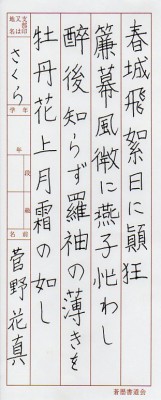 春城飛絮日に顚狂
簾幕風微に燕子忙わし
醉後知らず羅袖の薄きを
牡丹花上月霜の如し
支部印又は地名
さくら
学年
年
段級
名前
菅野花真
蒼墨書道会